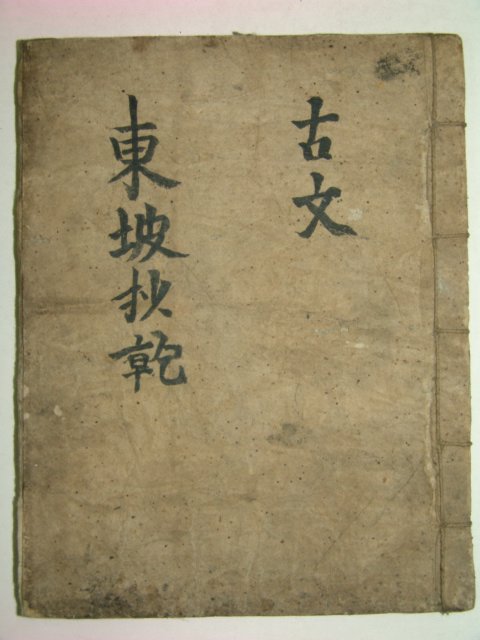 古文
東坡抄乾